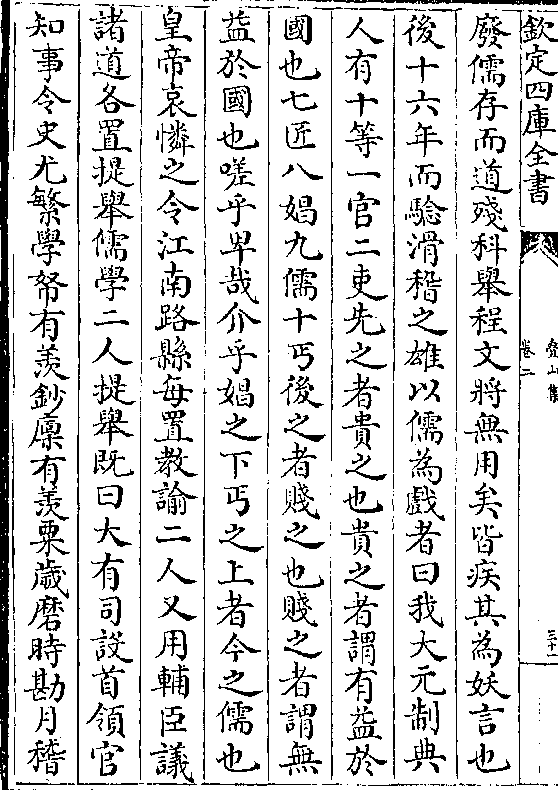 欽定四庫全書
疊山集
卷二
三十一
廢儒存而道殘科舉程文將無用矣皆疾其為妖言也
後十六年而驗滑稽之雄以儒為戲者曰我大元制典
人有十等一官二吏先之者貴之也貴之者謂有益於
國也七匠八娼九儒十丐後之者賤之也賤之者謂無
益於國也嗟乎卑哉介乎娼之下丐之上者今之儒也
皇帝哀憐之令江南路縣每置教諭二人又用輔臣議
諸道各置提舉儒學二人提舉既曰大有司設首領官
知事令史尤繁學帑有羨鈔廩有羨粟歲磨時勘月稽